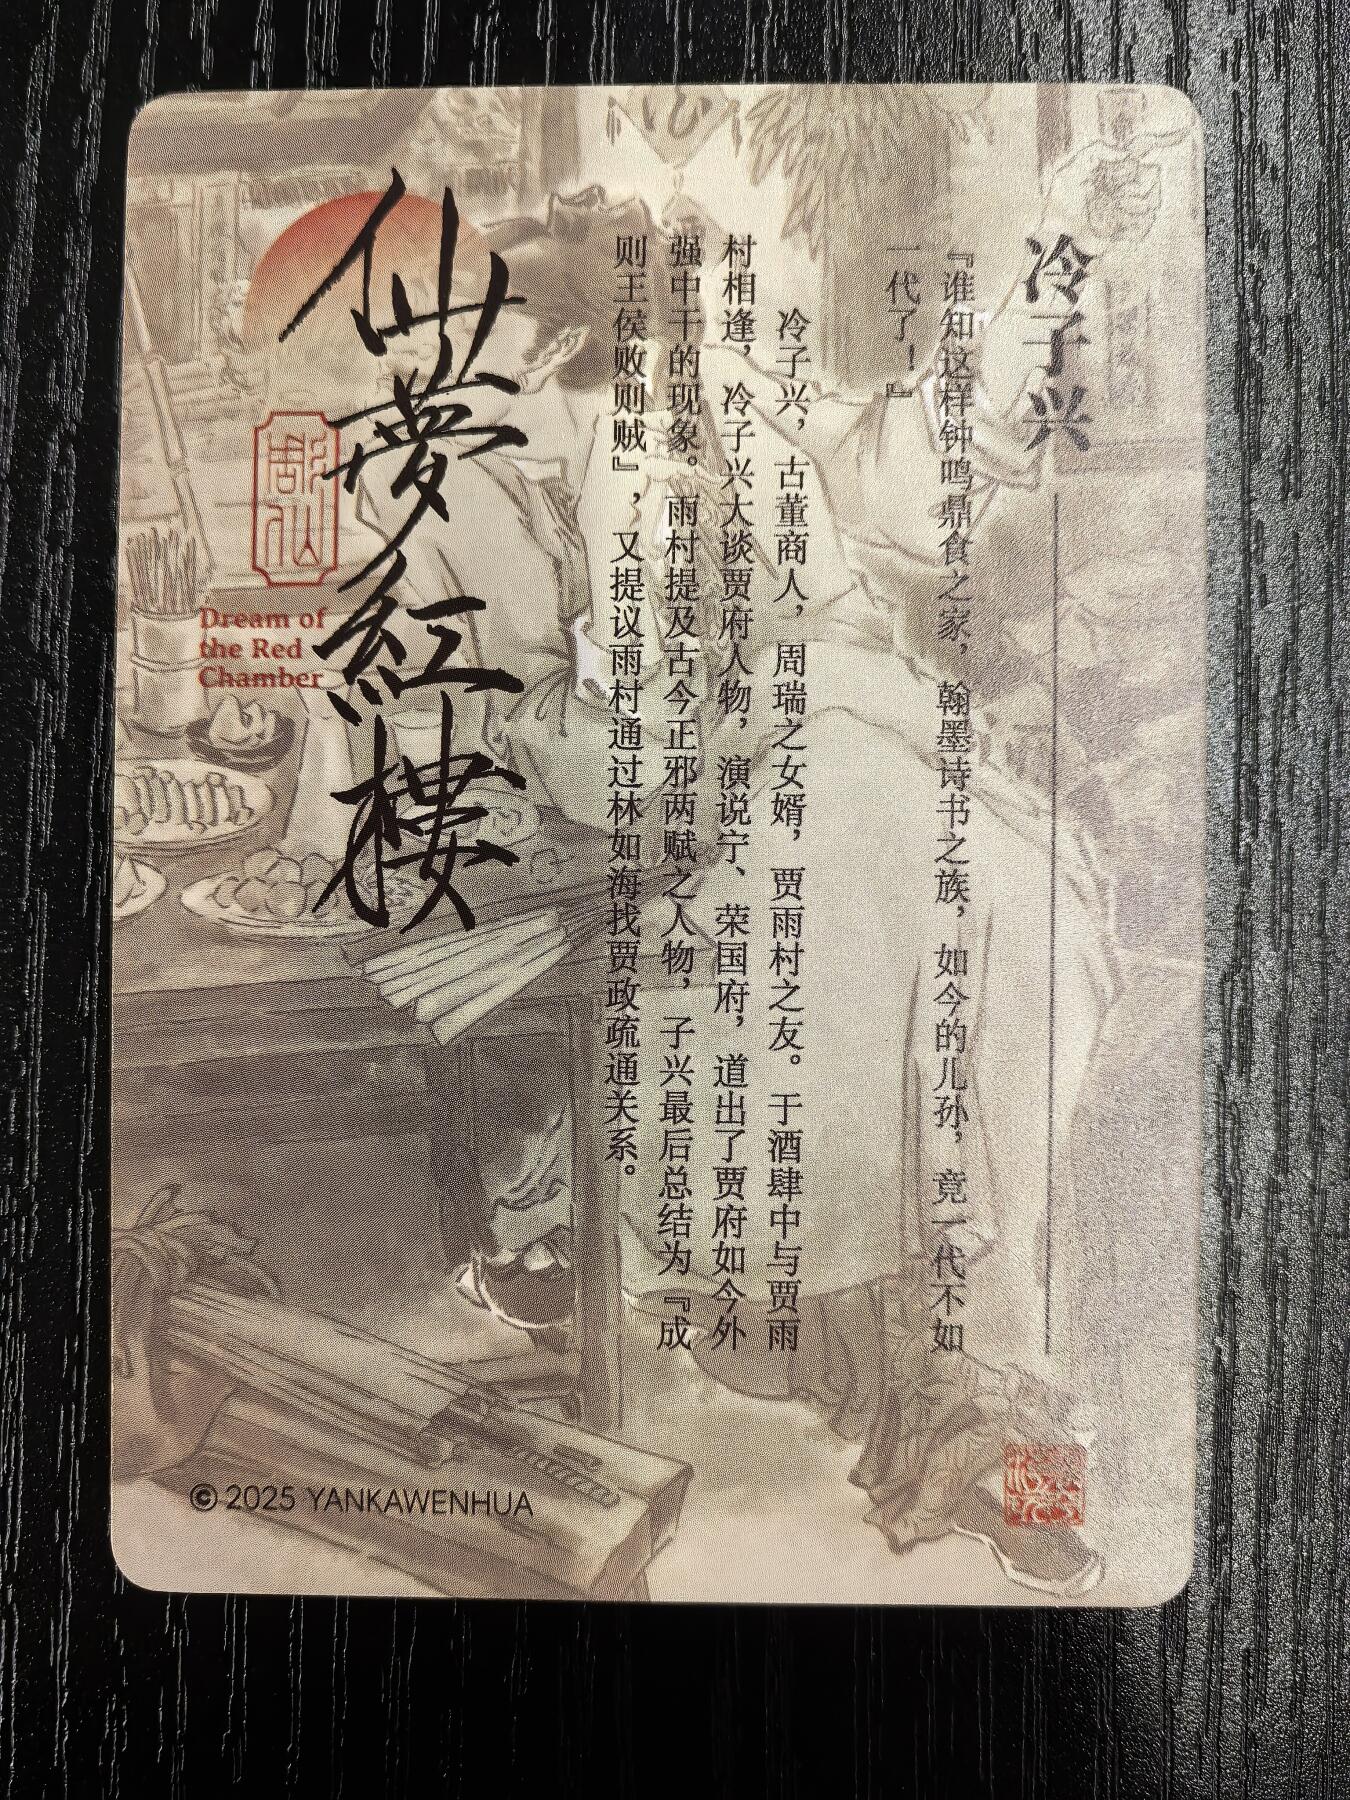 冷子兴
『谁知这样钟鸣鼎食之家，翰墨诗书之族，如今的儿孙，竟一代不如
一代了！』
冷子兴，古董商人，周瑞之女婿，贾雨村之友。于酒肆中与贾雨
村相逢，冷子兴大谈贾府人物，演说宁、荣国府，道出了贾府如今外
强中干的现象。雨村提及古今正邪两赋之人物，子兴最后总结为『成
则王侯败则贼』，又提议雨村通过林如海找贾政疏通关系。
仙梦紅樓
Dream of
the Red
Chamber
© 2025 YANKAWENHUA